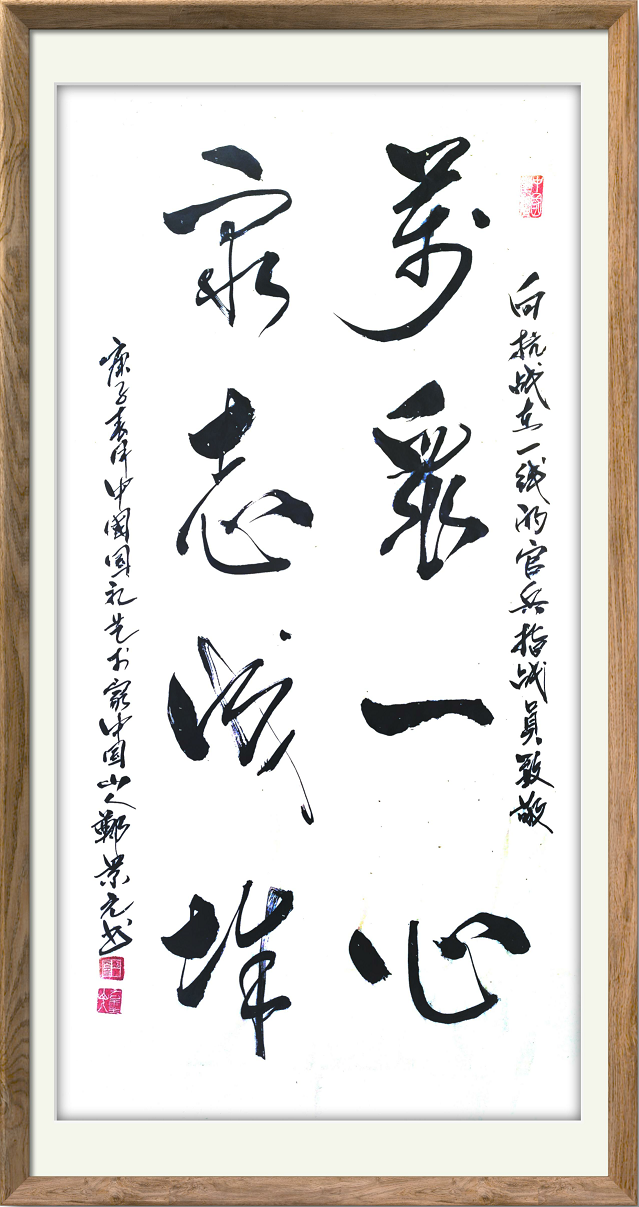 向抗战在一线的官兵指战員致敬
萬眾一心
衆志成城
庚子春中國国礼艺术家中国山人鄭景元书